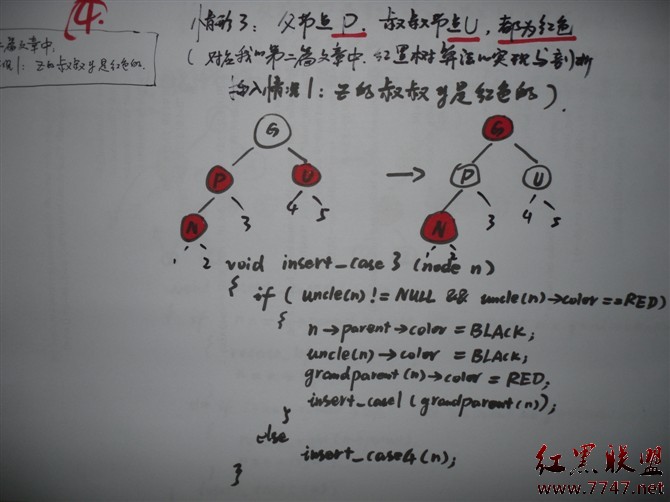 4.
二篇文章中,
情况1: z的叔叔y是红色的.
情形3: 父节点P、叔叔节点U, 都为红色
(对应我的第二篇文章中, 红黑树算法的实现与剖析
插入情况1: z的叔叔y是红色的).
G G
P U → P U
N 3 4 5 N 3 4 5
1 2 1 2
void insert_case3 (node n)
{ if ( uncle(n) != NULL && uncle(n)->color == RED)
{
n->parent->color = BLACK;
uncle(n)->color = BLACK;
grandparent(n)->color = RED;
insert_case1(grandparent(n));
}
else
insert_case4(n);
}
红黑联盟
www.7747.net